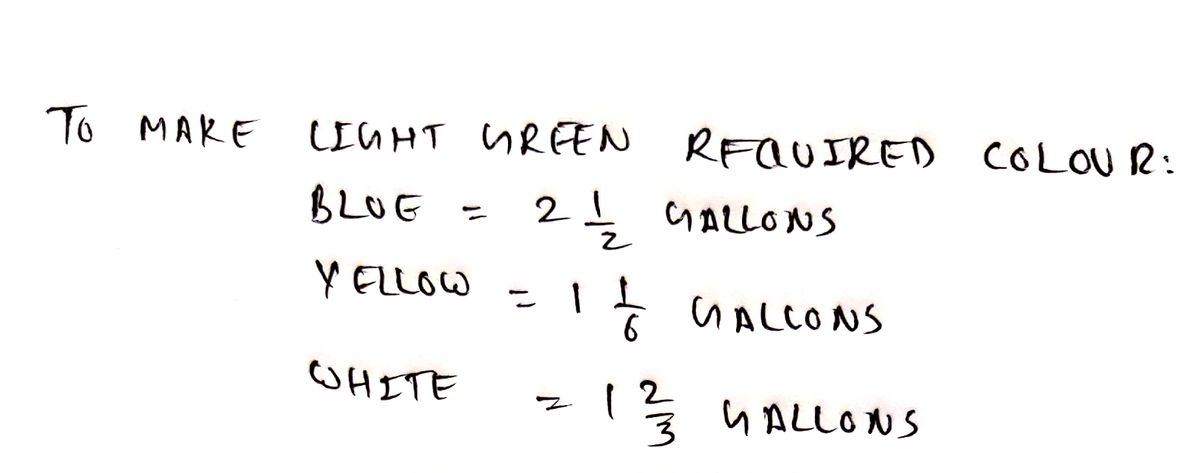 TO MAKE LIGHT GREEN REQUIRED COLOUR:
BLUE = 2 1/2 GALLONS
YELLOW = 1 1/6 GALLONS
WHITE = 1 2/3 GALLONS